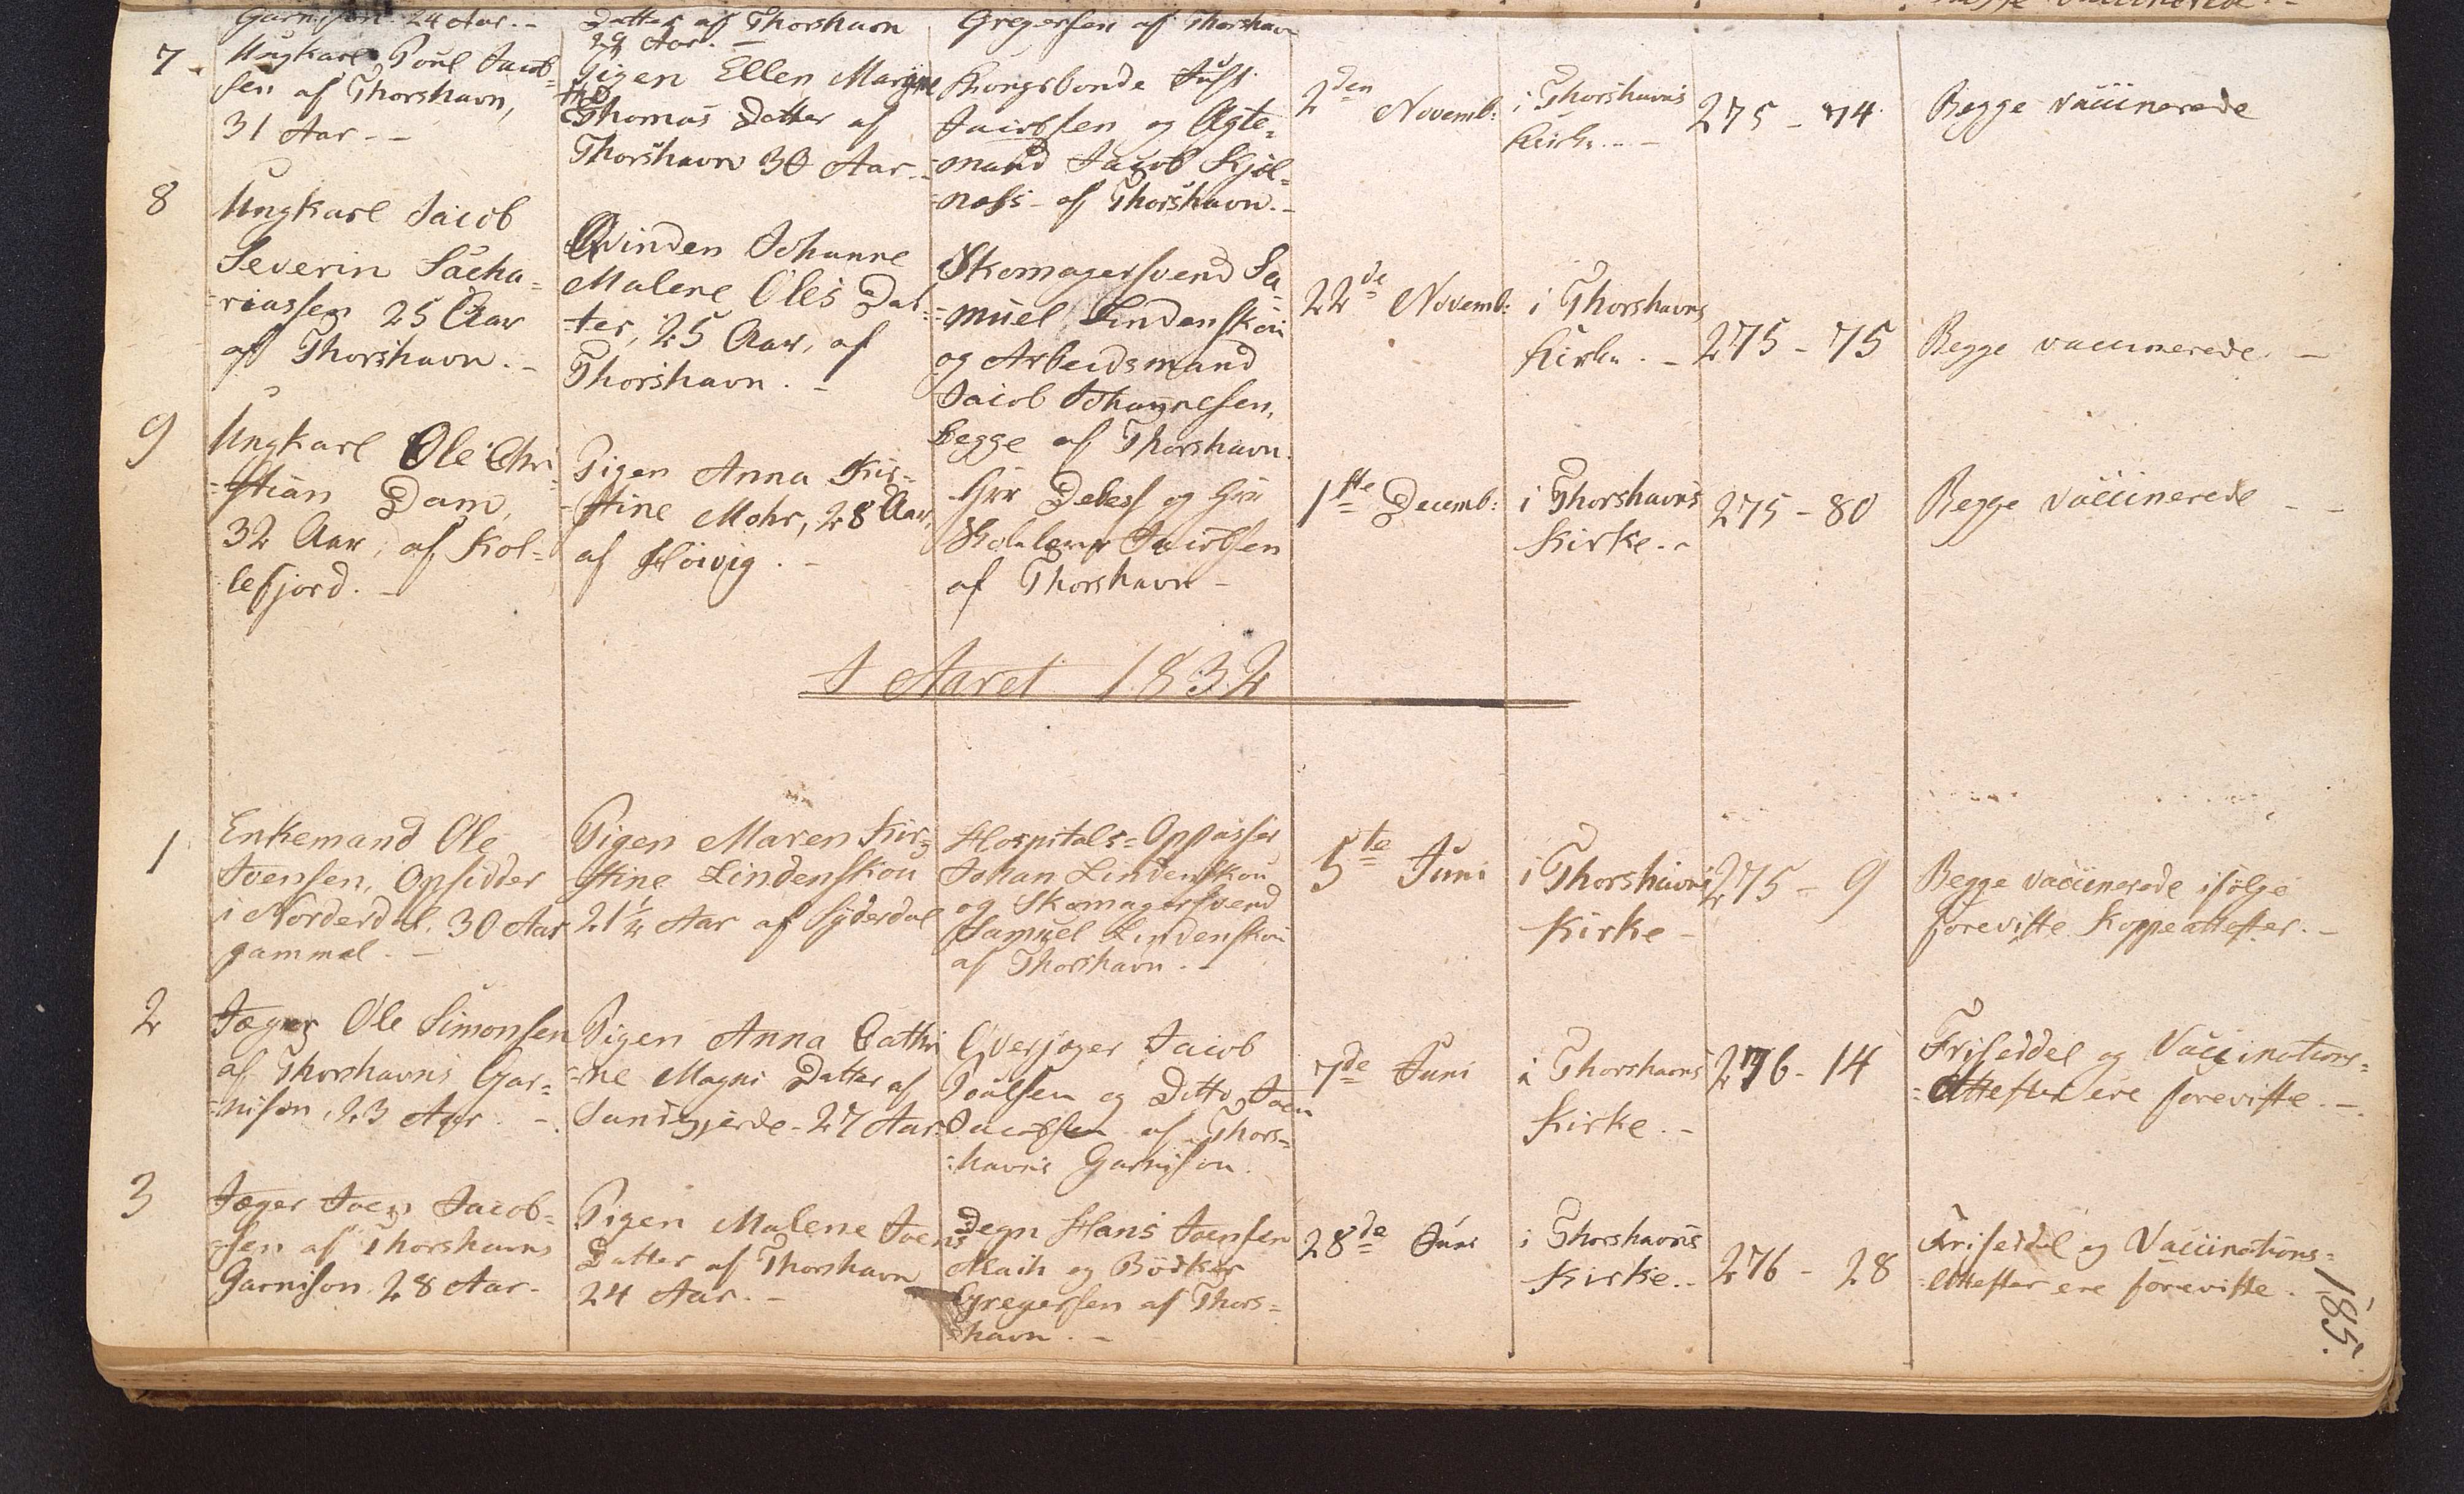 Garnison 24 Aar. -
Datter af Thorshavn
29 Aar. -
Gregersen af Thorshavn
7.
Ungkarl Poul Jacob-
sen af Thorshavn,
31 Aar - -
Pigen Ellen Marie
Thomas Datter af
Thorshavn 30 Aar -
Kongsbonde Just
Jacobsen og Agte-
=mand Jacob Kjöl-
=næss - af Thorshavn. -
2den Novemb:
i Thorshavns
Kirke. -
275 - 74.
Begge vaccinerede
8
Ungkarl Jacob
Severin Sacha-
riassen 25 Aar
af Thorshavn. -
Qvinden Johanne
Malene Oles Dat-
=ter, 25 Aar, af
Thorshavn. -
Skomagersvend Sa-
=muel Lindenskou
og Arbeidsmand
Jacob Johannesen,
begge af Thorshavn.
22de Novemb:
i Thorshavns
Kirke. -
275 - 75
Begge vaccinerede -
9
Ungkarl Ole Chri-
=stian Dam,
32 Aar, af Kol-
lefjord. -
Pigen Anna Kir-
=stine Mohr, 28 Aar,
af Höivig. -
Hrr Debes og Hrr
Jacobsen
af Thorshavn -
1ste Decemb:
i Thorshavns
Kirke. -
275 - 80
Begge vaccinerede - -
I Aaret 1832
1
Enkemand Ole
Joensen, Opsidder
i Norderdal. 30 Aar
gammel. -
Pigen Maren Kir-
stine Lindenskou
21½ Aar af Syderdal
Hospitals-Oppasser
Johan Lindenskou
og Skomagersvend
Samuel Lindenskou
af Thorshavn. -
5te Juni
i Thorshavns
Kirke -
275 - 9
Begge vaccinerede ifölge
foreviste Koppeattester. -
2
Jæger Ole Simonsen
af Thorshavns Gar-
=nison, 23 Aar. -
Pigen Anna Cathri
=ne Magni Datter af
Sandgjerde - 27 Aar
Overjæger Jacob
Poulsen og Ditto Joen
Jacobsen af Thors-
=havns Garnison.
7de Juni
i Thorshavns
Kirke. -
276 - 14
Friseddel og Vaccinations-
=Attester ere foreviste. -
3
Jæger Joen Jacob-
sen af Thorshavns
Garnison. 28 Aar -
Pigen Malene Joens
Datter af Thorshavn
24 Aar. -
Degn Hans Joensen
og Bödker
Gregersen af Thors-
=havn. -
28de Juni
i Thorshavns
Kirke. -
276 - 28
Friseddel og Vaccinations-
=Attester ere foreviste.
185.